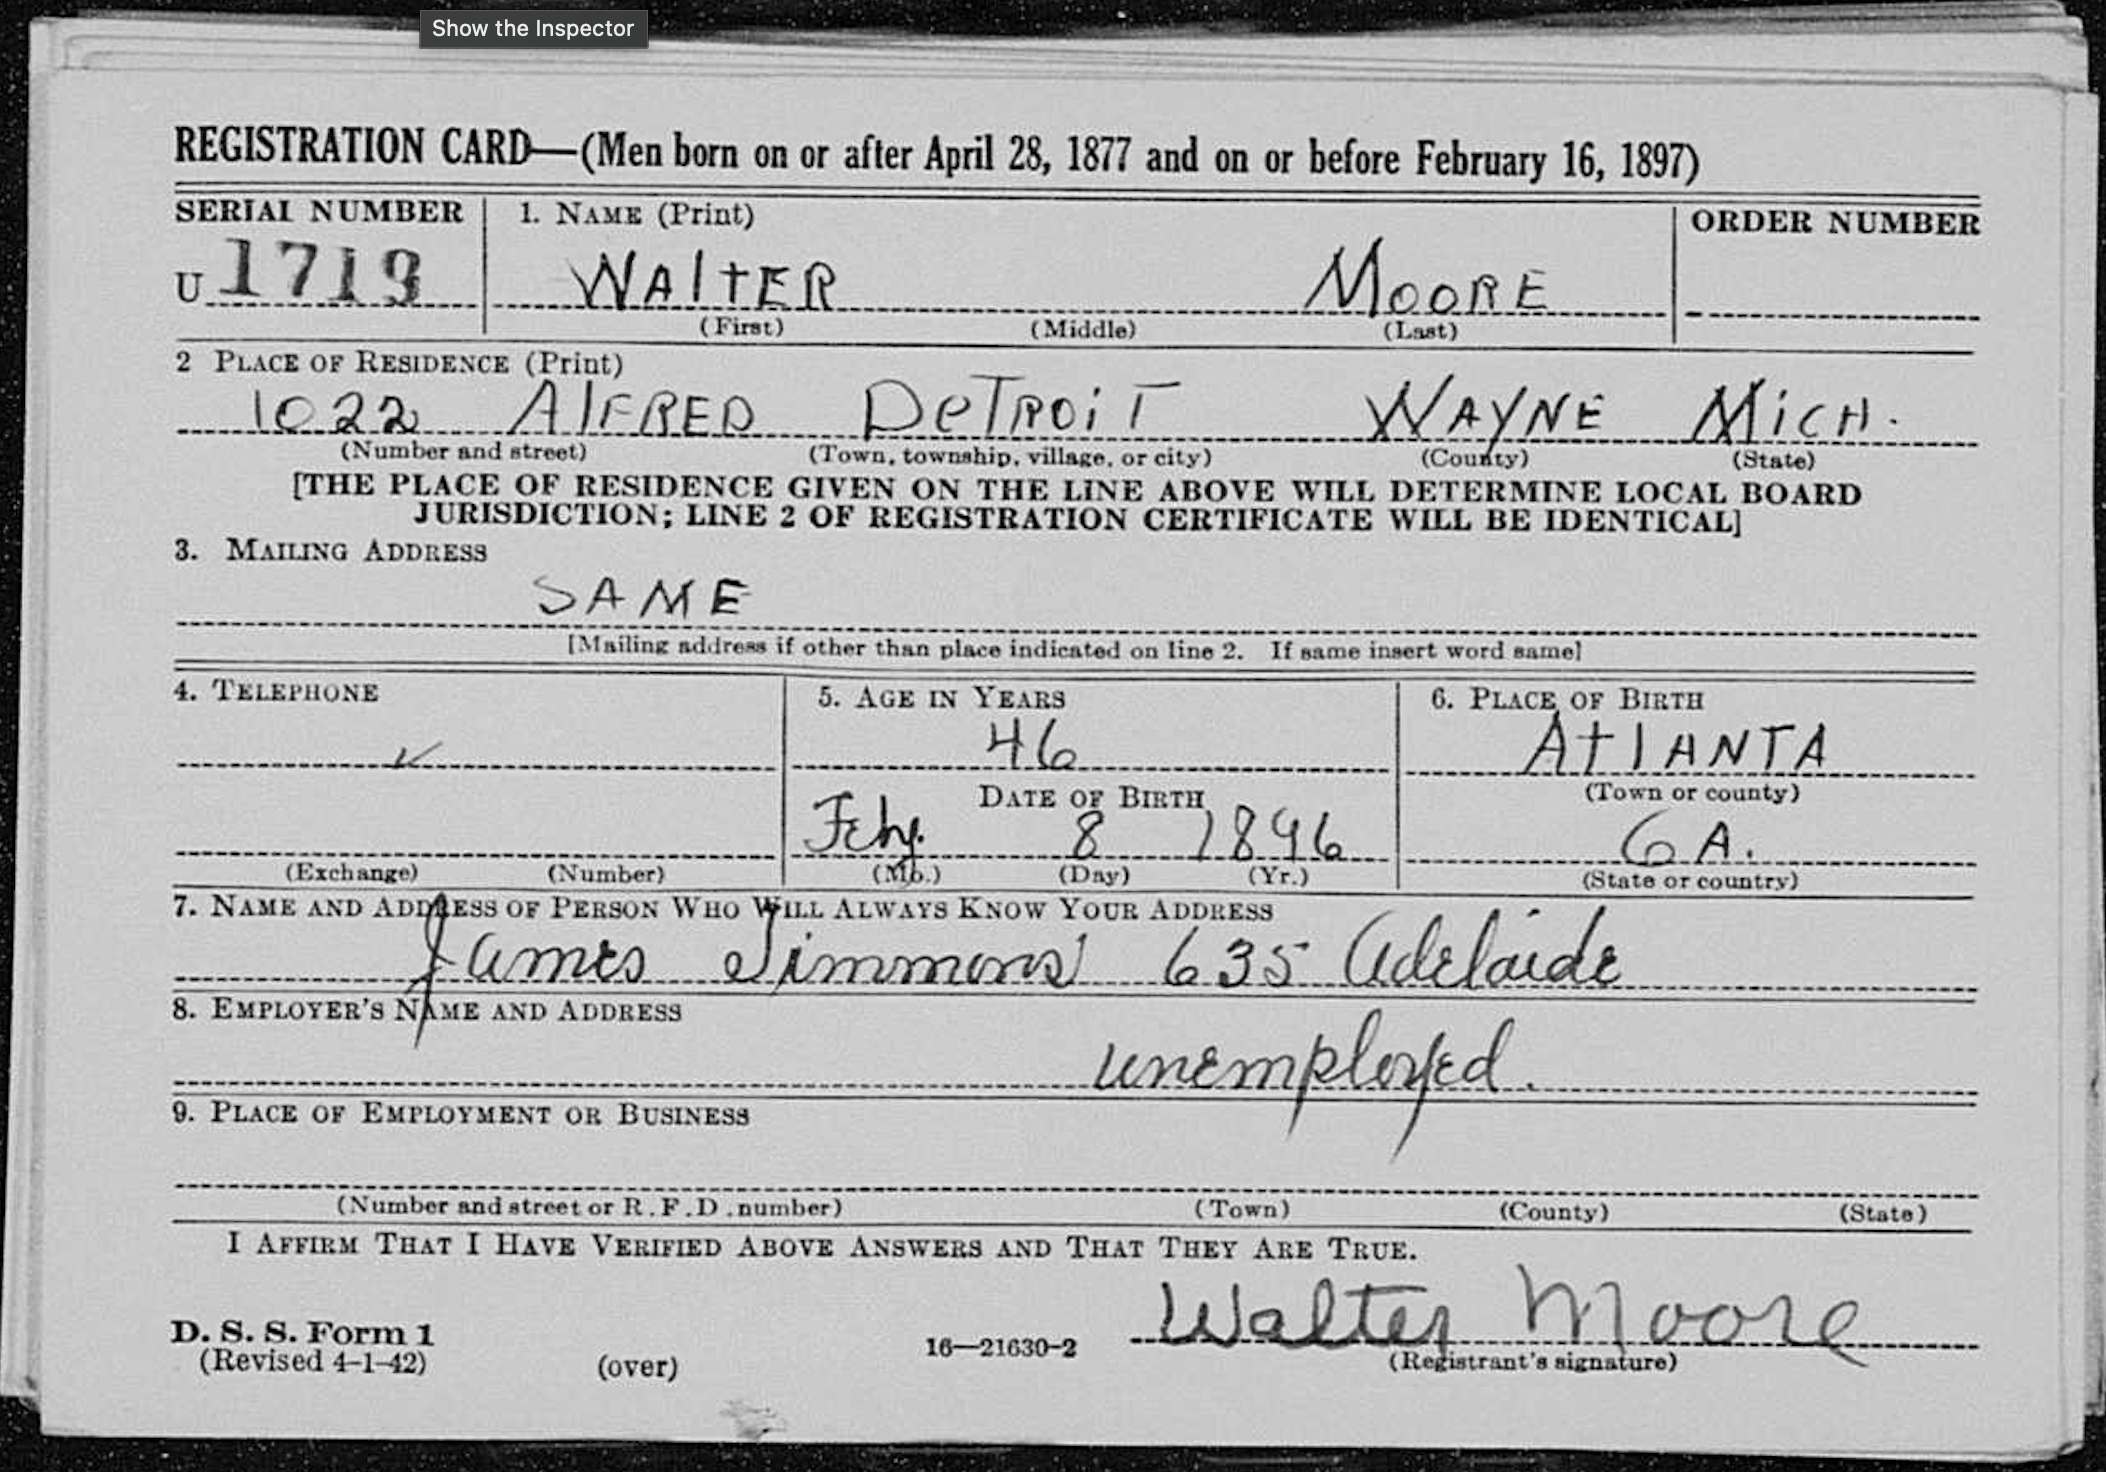 Show the Inspector
REGISTRATION CARD—(Men born on or after April 28, 1877 and on or before February 16, 1897)
SERIAL NUMBER 1. NAME (Print) ORDER NUMBER
U 1719 WAlTER MOORE
(First) (Middle) (Last)
2 PLACE OF RESIDENCE (Print)
1022 AlFRED DeTROiT WAYNE MiCH.
(Number and street) (Town, township, village, or city) (County) (State)
[THE PLACE OF RESIDENCE GIVEN ON THE LINE ABOVE WILL DETERMINE LOCAL BOARD
JURISDICTION; LINE 2 OF REGISTRATION CERTIFICATE WILL BE IDENTICAL]
3. MAILING ADDRESS
SAME
[Mailing address if other than place indicated on line 2. If same insert word same]
4. TELEPHONE 5. AGE IN YEARS 6. PLACE OF BIRTH
46 AtlANTA
DATE OF BIRTH (Town or county)
Feby. 8 1896 GA.
(Exchange) (Number) (Mo.) (Day) (Yr.) (State or country)
7. NAME AND ADDRESS OF PERSON WHO WILL ALWAYS KNOW YOUR ADDRESS
James Simmons 635 Adelaide
8. EMPLOYER'S NAME AND ADDRESS
unemployed.
9. PLACE OF EMPLOYMENT OR BUSINESS
(Number and street or R.F.D. number) (Town) (County) (State)
I AFFIRM THAT I HAVE VERIFIED ABOVE ANSWERS AND THAT THEY ARE TRUE.
Walter Moore
D. S. S. Form 1
(Revised 4-1-42) (over) 16—21630-2 (Registrant's signature)